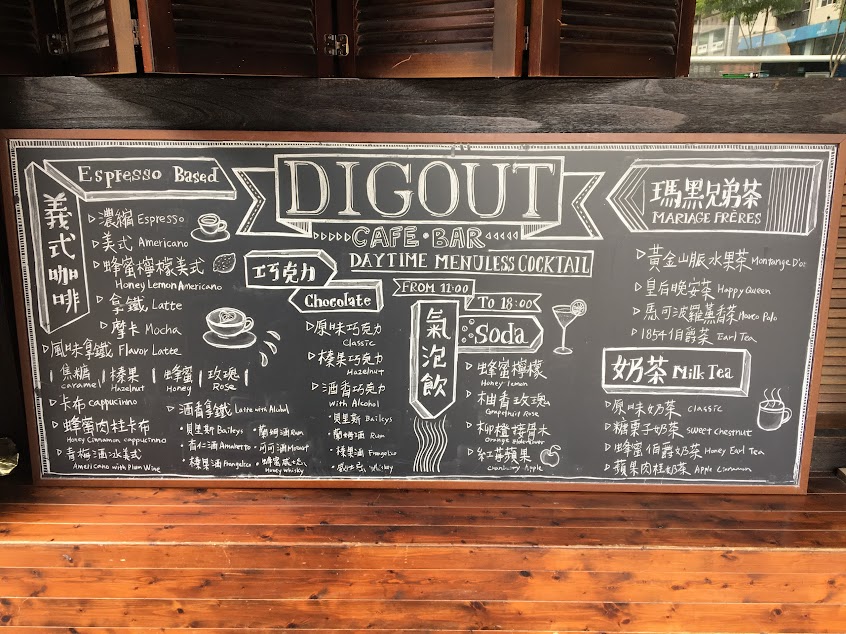 DIGOUT
CAFE·BAR
DAYTIME MENULESS COCKTAIL
FROM 11:00
TO 18:00
Espresso Based
義式咖啡
濃縮 Espresso
美式 Americano
蜂蜜檸檬美式
Honey Lemon Americano
拿鐵 Latte
摩卡 Mocha
風味拿鐵 Flavor Latte
焦糖 | 榛果 | 蜂蜜 | 玫瑰
caramel Hazelnut Honey Rose
卡布 cappuccinno
蜂蜜肉桂卡布
Honey Cinnamon cappuccinno
青梅酒冰美式
Americano with Plum Wine
酒香拿鐵 Latte with Alcohol
·貝里斯 Baileys
·蘭姆酒 Rum
·杏仁酒 Amaretto
·可可酒 Mozart
·榛果酒 Frangelico
·蜂蜜威士忌
Honey Whisky
巧克力
Chocolate
原味巧克力
Classic
榛果巧克力
Hazelnut
酒香巧克力
With Alcohol
·貝里斯 Baileys
·蘭姆酒 Rum
·榛果酒 Frangelico
·威士忌 Whisky
氣泡飲
Soda
蜂蜜檸檬
Honey lemon
柚香玫瑰
Grapefruit Rose
柳橙接骨木
Orange Elderflower
紅莓蘋果
Cranberry Apple
瑪黑兄弟茶
MARIAGE FRÈRES
黃金山脈水果茶 Montange D'or
皇后晚安茶 Happy Queen
馬可波羅薰香茶 Marco Polo
1854伯爵茶 Earl Tea
奶茶 Milk Tea
原味奶茶 classic
糖栗子奶茶 Sweet chestnut
蜂蜜伯爵奶茶 Honey Earl Tea
蘋果肉桂奶茶 Apple Cinnamon